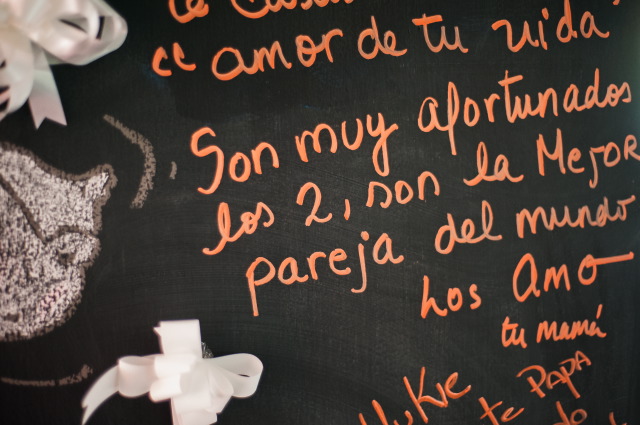 amor de tu vida"
Son muy afortunados
los 2, son la Mejor
pareja del mundo
Los Amo
tu mamá
te PAPA